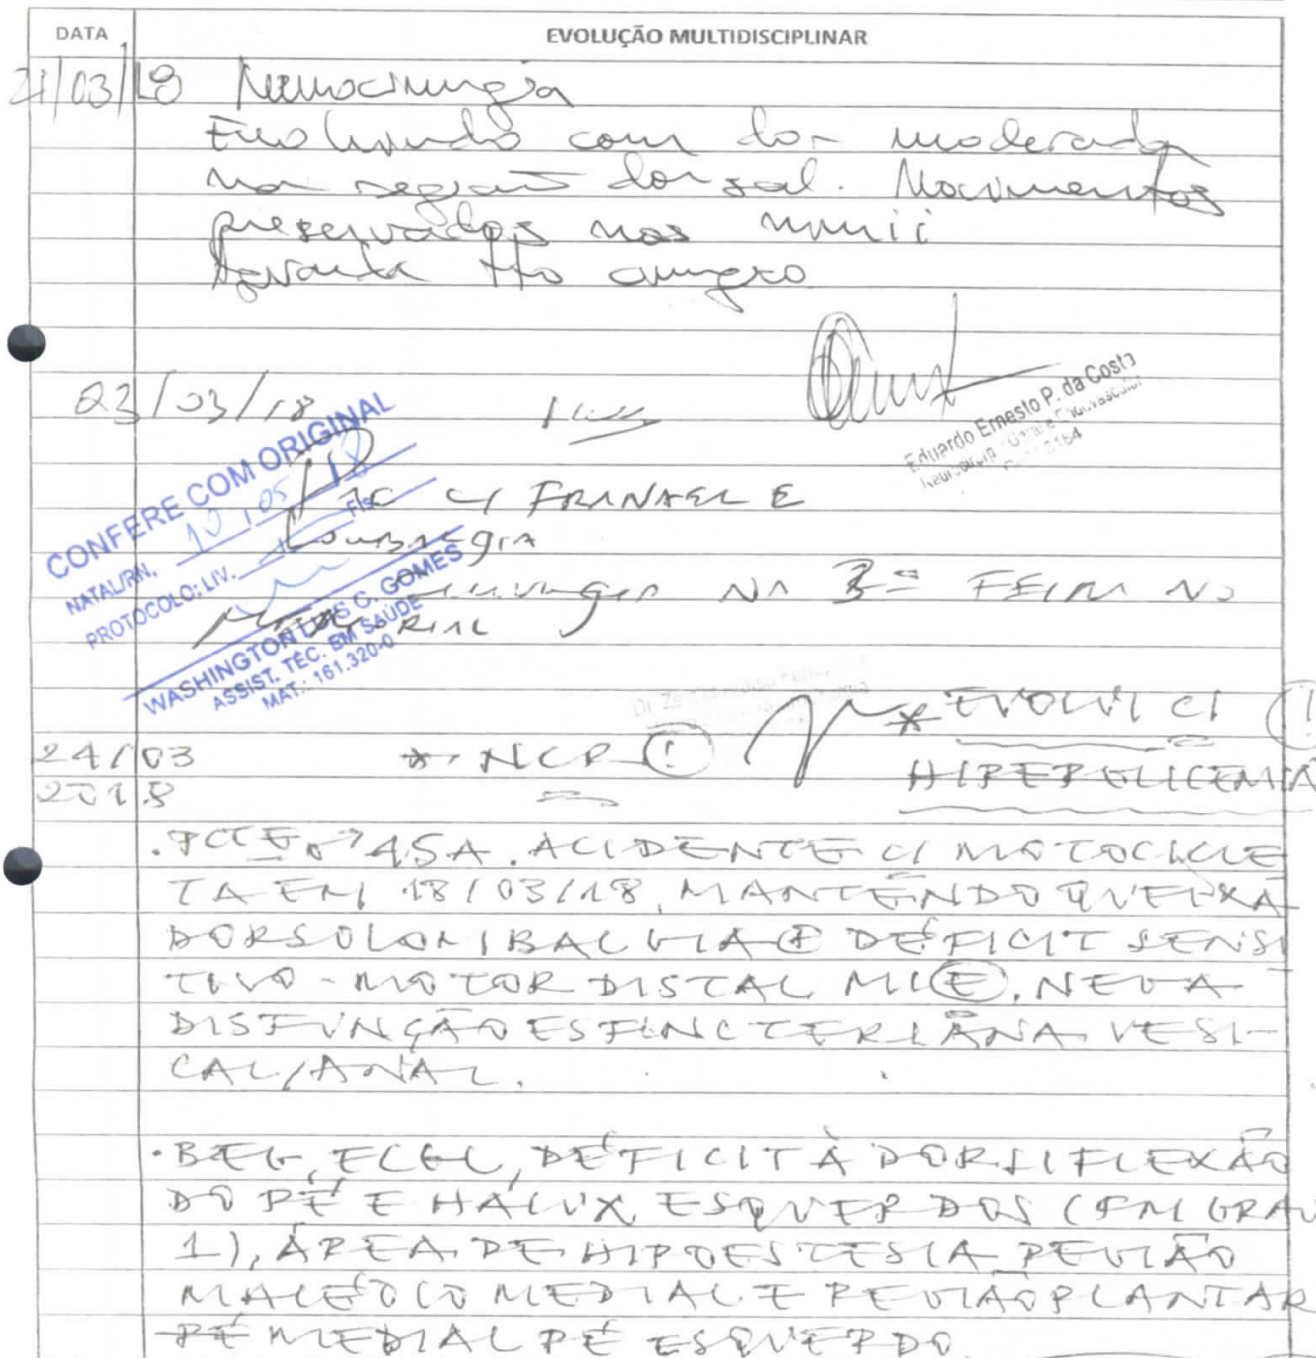 DATA EVOLUÇÃO MULTIDISCIPLINAR
21/03/18 Neurocirurgia
Evoluindo com dor moderada
na região dorsal. Movimentos
preservados nos mmii
Aguarda tto cirurgico
Eduardo Ernesto P. da Costa
23/03/18
CONFERE COM ORIGINAL
10/05/18
NATAL/RN,
PROTOCOLO: LIV. Fls
WASHINGTON LUIS C. GOMES
ASSIST. TÉC. EM SAÚDE
MAT.: 161.320-0
PAC C/ E
LOMBALGIA
NA 3ª FEIRA NO
MEMORIAL
* EVOLUI C/ (!)
HIPERGLICEMIA
24/03
2018
* NCR (!)
. PCTE ♂ 45A. ACIDENTE C/ MOTOCICLE
TA EM 18/03/18, MANTENDO QUEIXA
DORSOLOMBALGIA ⊕ DÉFICIT SENSI
TIVO-MOTOR DISTAL MI(E). NEGA
DISFUNÇÃO ESFINCTERIANA VESI-
CAL/ANAL.
. BEG, ECGL, DÉFICIT À DORSIFLEXÃO
DO PÉ E HÁLUX ESQUERDOS (FM GRAU
1), ÁREA DE HIPOESTESIA REGIÃO
MALÉOLO MEDIAL E REGIÃO PLANTAR
PÉ MEDIAL PÉ ESQUERDO